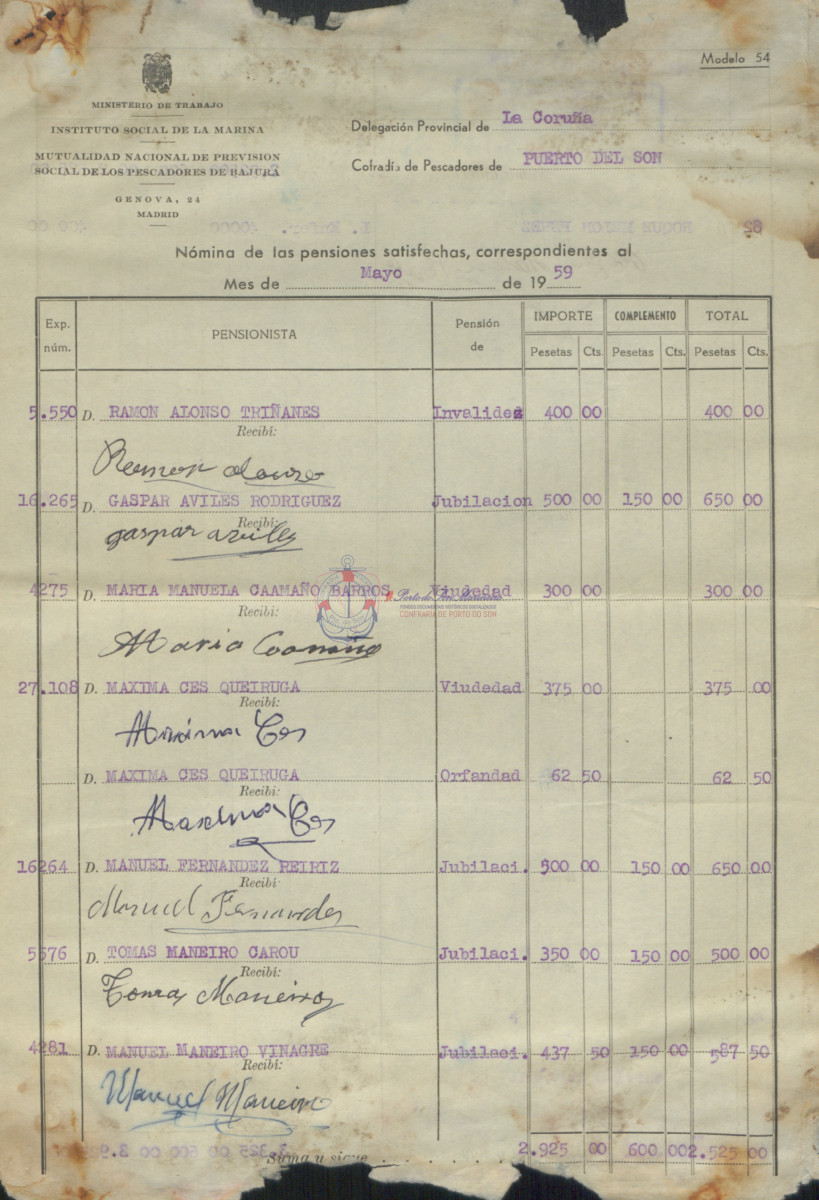 Modelo 54
MINISTERIO DE TRABAJO
INSTITUTO SOCIAL DE LA MARINA
MUTUALIDAD NACIONAL DE PREVISION
SOCIAL DE LOS PESCADORES DE BAJURA
GENOVA, 24
MADRID
Delegación Provincial de La Coruña
Cofradía de Pescadores de PUERTO DEL SON
Nómina de las pensiones satisfechas, correspondientes al
Mes de Mayo de 1959
Exp. núm. PENSIONISTA Pensión de IMPORTE COMPLEMENTO TOTAL
Pesetas Cts. Pesetas Cts. Pesetas Cts.
5.550 D. RAMON ALONSO TRIÑANES Invalidez 400 00 400 00
Recibí:
Ramon Alonso
16.265 D. GASPAR AVILES RODRIGUEZ Jubilacion 500 00 150 00 650 00
Recibí:
gaspar aviles
4275 D. MARIA MANUELA CAAMAÑO BARROS Viudedad 300 00 300 00
Recibí:
FONDOS DOCUMENTAIS HISTÓRICOS DIXITALIZADOS
CONFRARÍA DE PORTO DO SON
Maria Caamaño
27.108 D. MAXIMA CES QUEIRUGA Viudedad 375 00 375 00
Recibí:
Maxima Ces
D. MAXIMA CES QUEIRUGA Orfandad 62 50 62 50
Recibí:
Maxima Ces
16264 D. MANUEL FERNANDEZ REIRIZ Jubilaci. 500 00 150 00 650 00
Recibí:
Manuel Fernandez
5576 D. TOMAS MANEIRO CAROU Jubilaci. 350 00 150 00 500 00
Recibí:
Tomas Maneiro
4281 D. MANUEL MANEIRO VINAGRE Jubilaci. 437 50 150 00 587 50
Recibí:
Manuel Maneiro
Suma y sigue 2.925 00 600 00 2.525 00